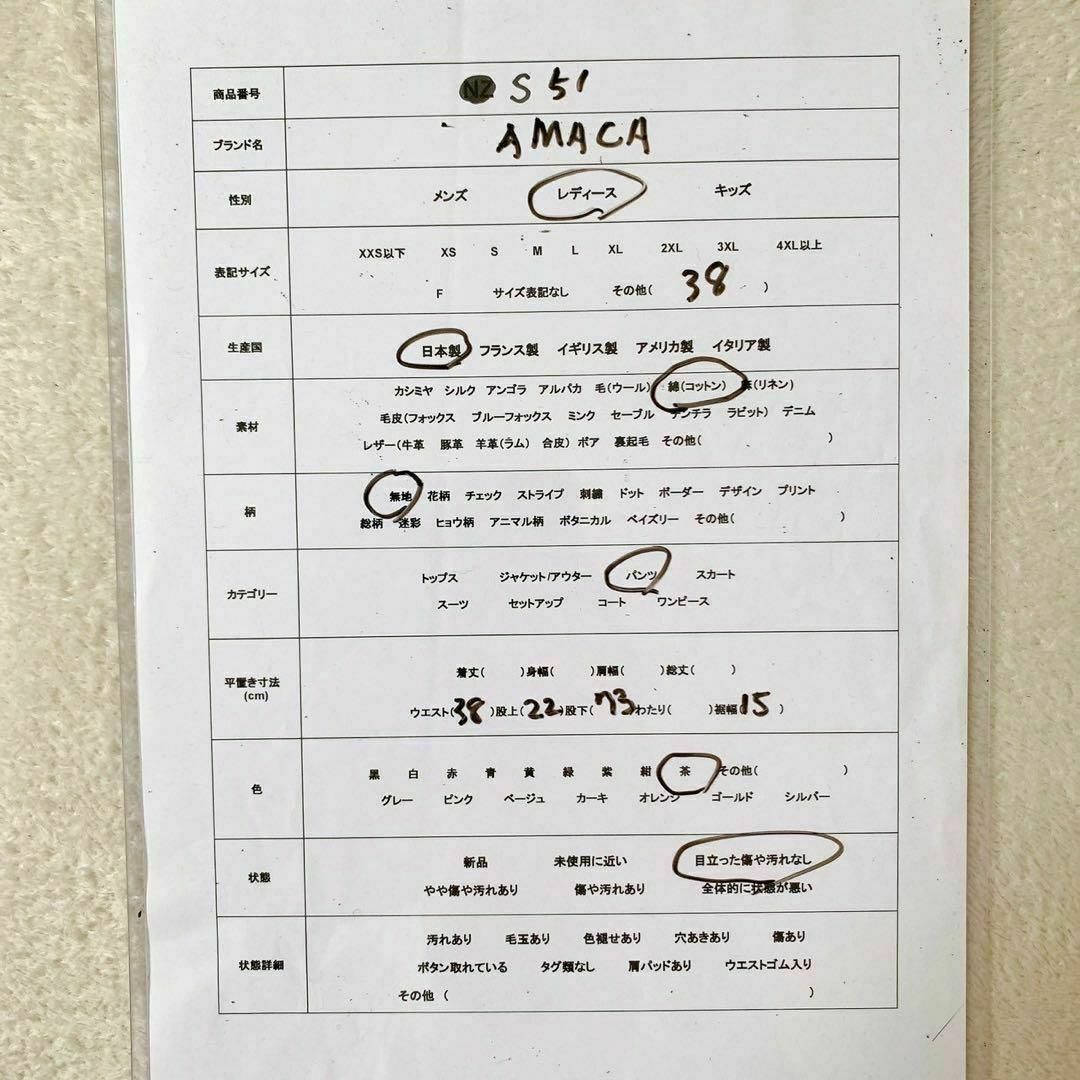 商品番号 NZ S 51
ブランド名 AMACA
性別 メンズ レディース キッズ
XXS以下 XS S M L XL 2XL 3XL 4XL以上
表記サイズ
F サイズ表記なし その他( 38 )
生産国 日本製 フランス製 イギリス製 アメリカ製 イタリア製
カシミヤ シルク アンゴラ アルパカ 毛(ウール) 綿(コットン) 麻(リネン)
素材 毛皮(フォックス ブルーフォックス ミンク セーブル チンチラ ラビット) デニム
レザー(牛革 豚革 羊革(ラム) 合皮) ボア 裏起毛 その他( )
柄 無地 花柄 チェック ストライプ 刺繍 ドット ボーダー デザイン プリント
総柄 迷彩 ヒョウ柄 アニマル柄 ボタニカル ペイズリー その他( )
カテゴリー トップス ジャケット/アウター パンツ スカート
スーツ セットアップ コート ワンピース
平置き寸法 着丈( )身幅( )肩幅( )総丈( )
(cm) ウエスト(38)股上(22)股下(73)わたり( )裾幅15 )
色 黒 白 赤 青 黄 緑 紫 紺 茶 その他( )
グレー ピンク ベージュ カーキ オレンジ ゴールド シルバー
状態 新品 未使用に近い 目立った傷や汚れなし
やや傷や汚れあり 傷や汚れあり 全体的に状態が悪い
汚れあり 毛玉あり 色褪せあり 穴あきあり 傷あり
状態詳細 ボタン取れている タグ類なし 肩パッドあり ウエストゴム入り
その他 ( )